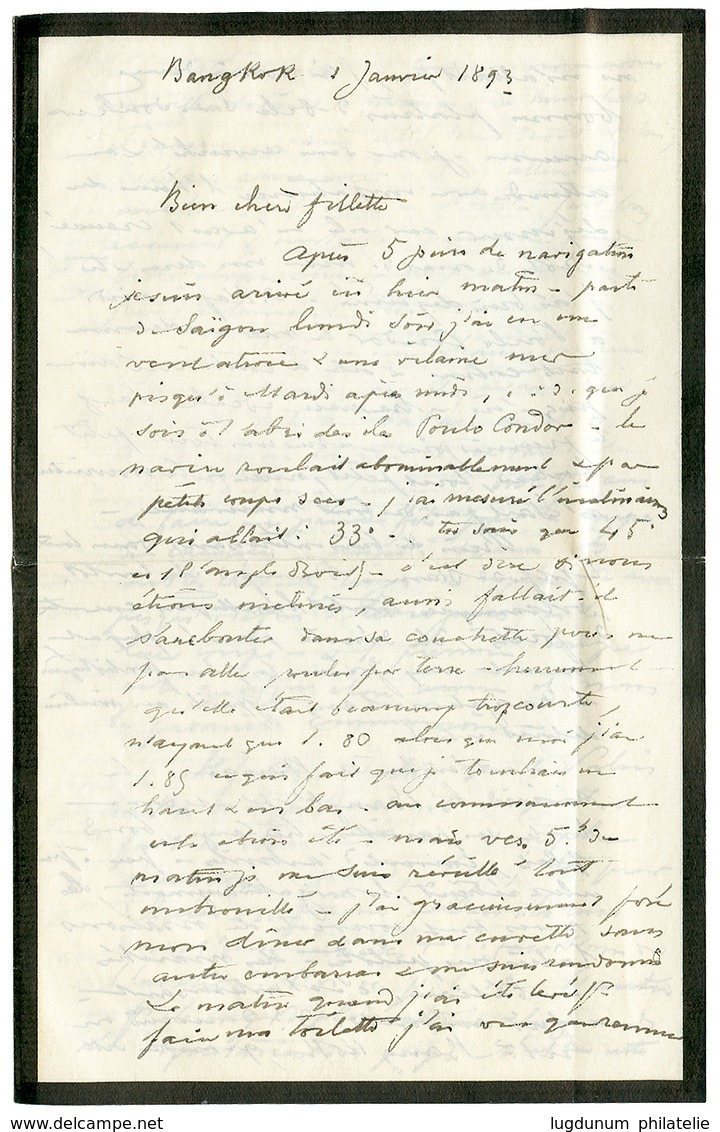 Bangkok 1 Janvier 1893
Bien chère fillette
Après 5 jours de navigation
je suis arrivé ici hier matin – parti
de Saïgon lundi soir j'ai eu un
vent atroce & une vilaine mer
jusqu'à Mardi après midi, c. à. d. que je
sois à l'abri des île Poulo Condor – le
navire roulait abominablement & par
petits coups secs – j'ai mesuré l'inclinaison
qui allait : 33° – tu sais que 45°
est l'angle droit – c'est dire si nous
étions inclinés, aussi fallait-il
s'arcbouter dans sa couchette pour ne
pas aller rouler par terre – heureusement
qu'elle était beaucoup trop courte,
n'ayant que 1.80 alors que moi j'ai
1.85 ce qui fait que je touchais en
haut & en bas – au commencement
mais vers 5.h du
matin je me suis réveillé tout
embrouillé – j'ai gracieusement posé
mon diner dans ma cuvette sans
autre embarras & me suis rendormi
Le matin quand j'ai été levé &
faire ma toilette j'ai vu que
lugdunum philatelie